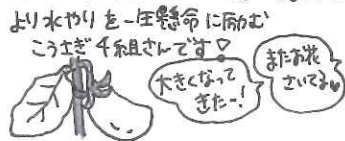 より水やりを一生懸命に励む
こうさぎ4組さんです♡
大きくなって
きたー!
またお花
さいてる♥